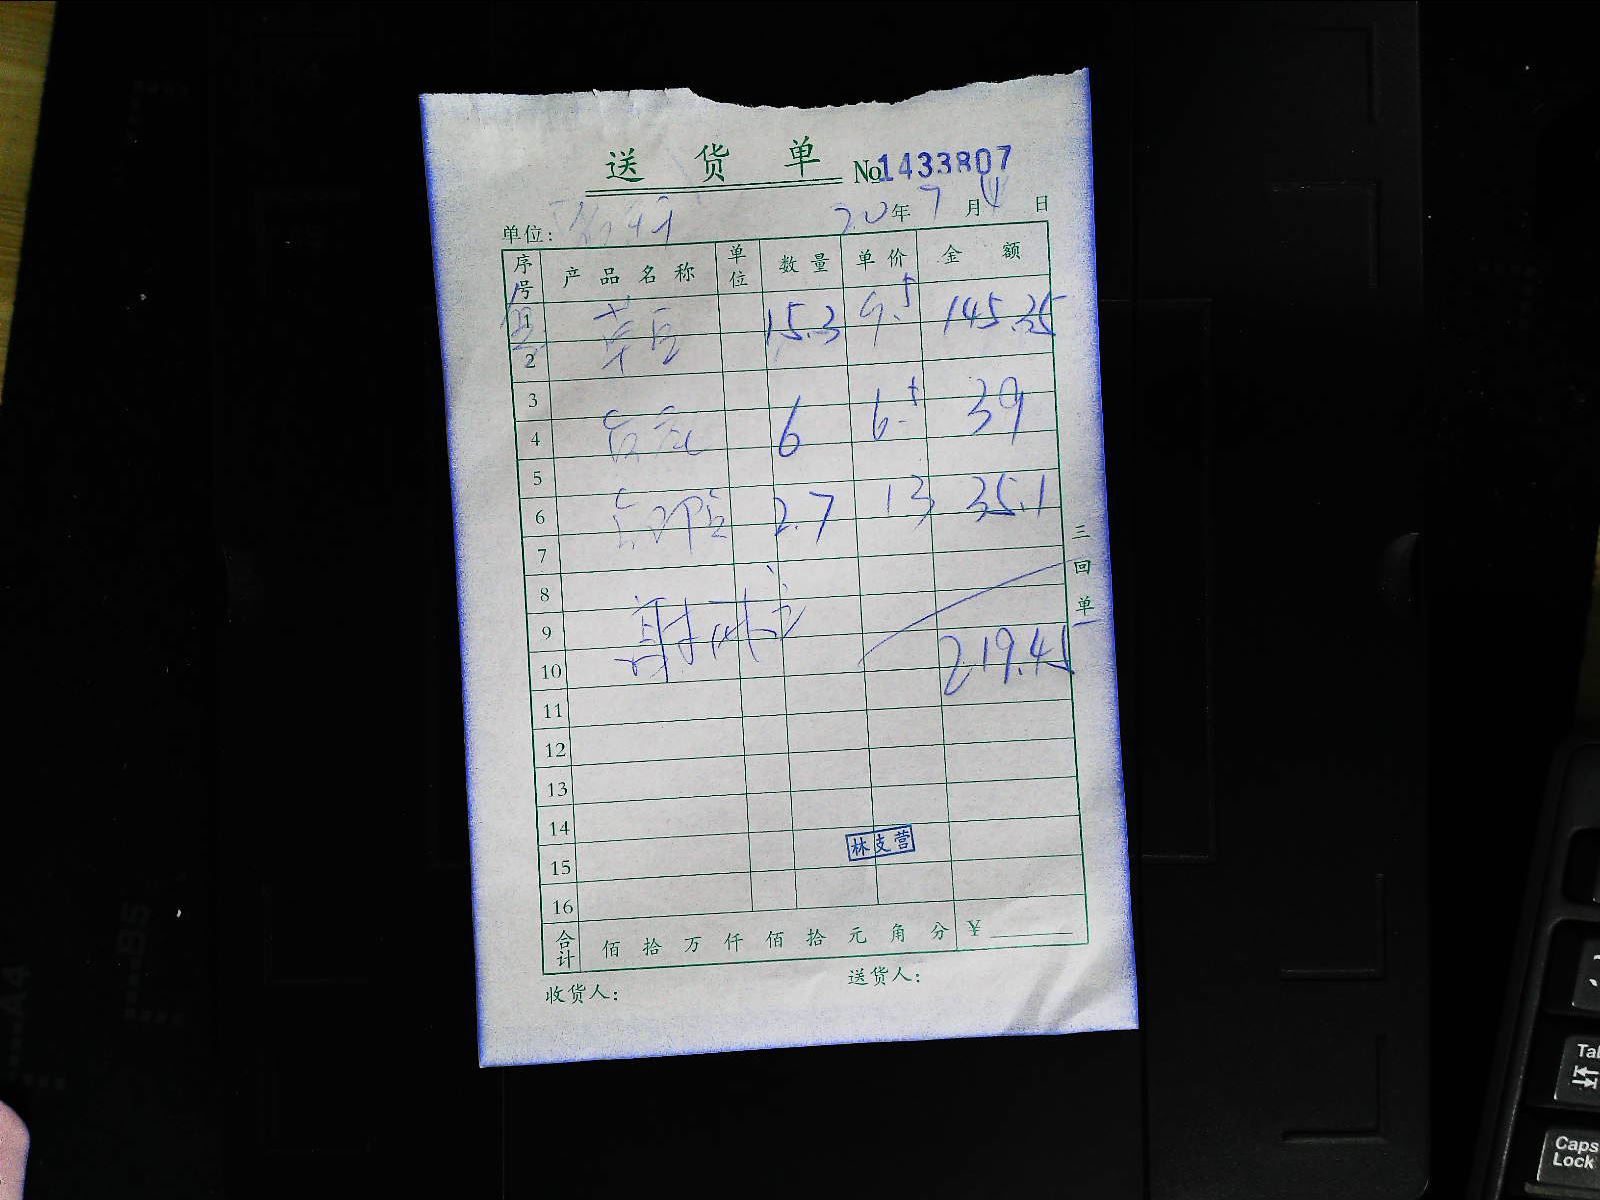 送 货 单 No 1433807
20年 7月 4日
单位:
序号 产品名称 单位 数量 单价 金额
1 15.3 9.5 145.35
2
3
4 6 6.5 39
5
6 2.7 13 35.1
7
8
9
10 219.45
11
12
13
14
15
16
林支营
合计 佰 拾 万 仟 佰 拾 元 角 分 ¥
收货人: 送货人:
三回单
Caps
Lock